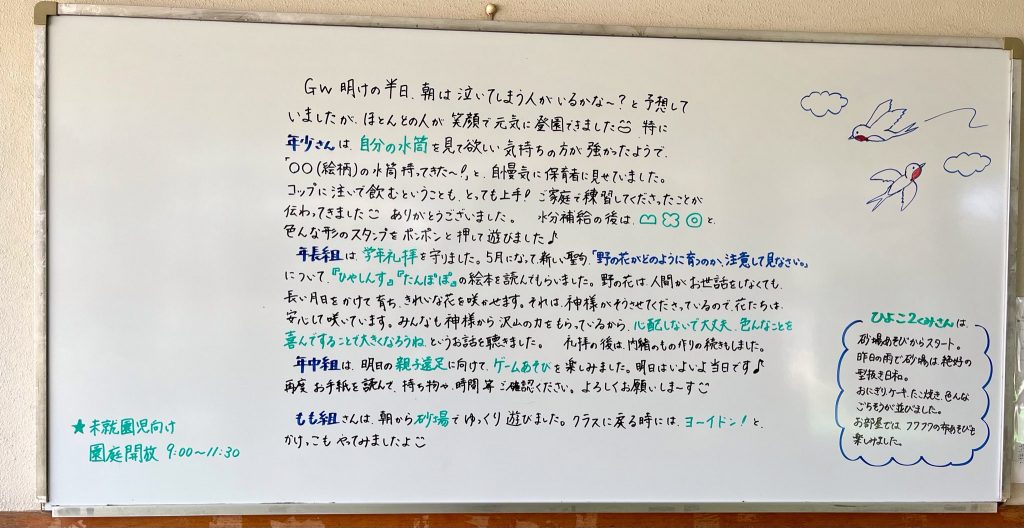 GW 明けの半日、朝は泣いてしまう人がいるかな〜?と予想して
いましたが、ほとんどの人が笑顔で元気に登園できました 特に
年少さんは、自分の水筒を見て欲しい気持ちの方が強かったようで、
「○○(絵柄)の水筒持ってきた〜!」と、自慢気に保育者に見せていました。
コップに注いで飲むということも、とっても上手! ご家庭で練習してくださったことが
伝わってきました ありがとうございました。 水分補給の後は、 と、
色んな形のスタンプをポンポンと押して遊びました♪
年長組は、学年礼拝を守りました。5月になって、新しい聖句、「野の花がどのように育つのか、注意して見なさい。」
について、『ひやしんす』『たんぽぽ』の絵本を読んでもらいました。野の花は、人間がお世話をしなくても、
長い月日をかけて育ち、きれいな花を咲かせます。それは、神様がそうさせてくださっているので、花たちは、
安心して咲いています。みんなも神様から沢山の力をもらっているから、心配しないで大丈夫、色んなことを
喜んですることで大きくなろうね、というお話を聴きました。 礼拝の後は、内緒のもの作りの続きもしました。
年中組は、明日の親子遠足に向けて、ゲームあそびを楽しみました。明日はいよいよ当日です♪
再度、お手紙を読んで、持ち物や、時間等ご確認ください。よろしくお願いしま〜す
もも組さんは、朝から砂場でゆっくり遊びました。クラスに戻る時には、ヨーイドン!と、
かけっこもやってみましたよ
★未就園児向け
園庭開放 9:00〜11:30
ひよこ2くみさんは、
砂場あそびからスタート。
昨日の雨で砂場は絶好の
型抜き日和。
おにぎり、ケーキ、たこ焼き、色んな
ごちそうが並びました。
お部屋では、フワフワの布あそびも
楽しみました。